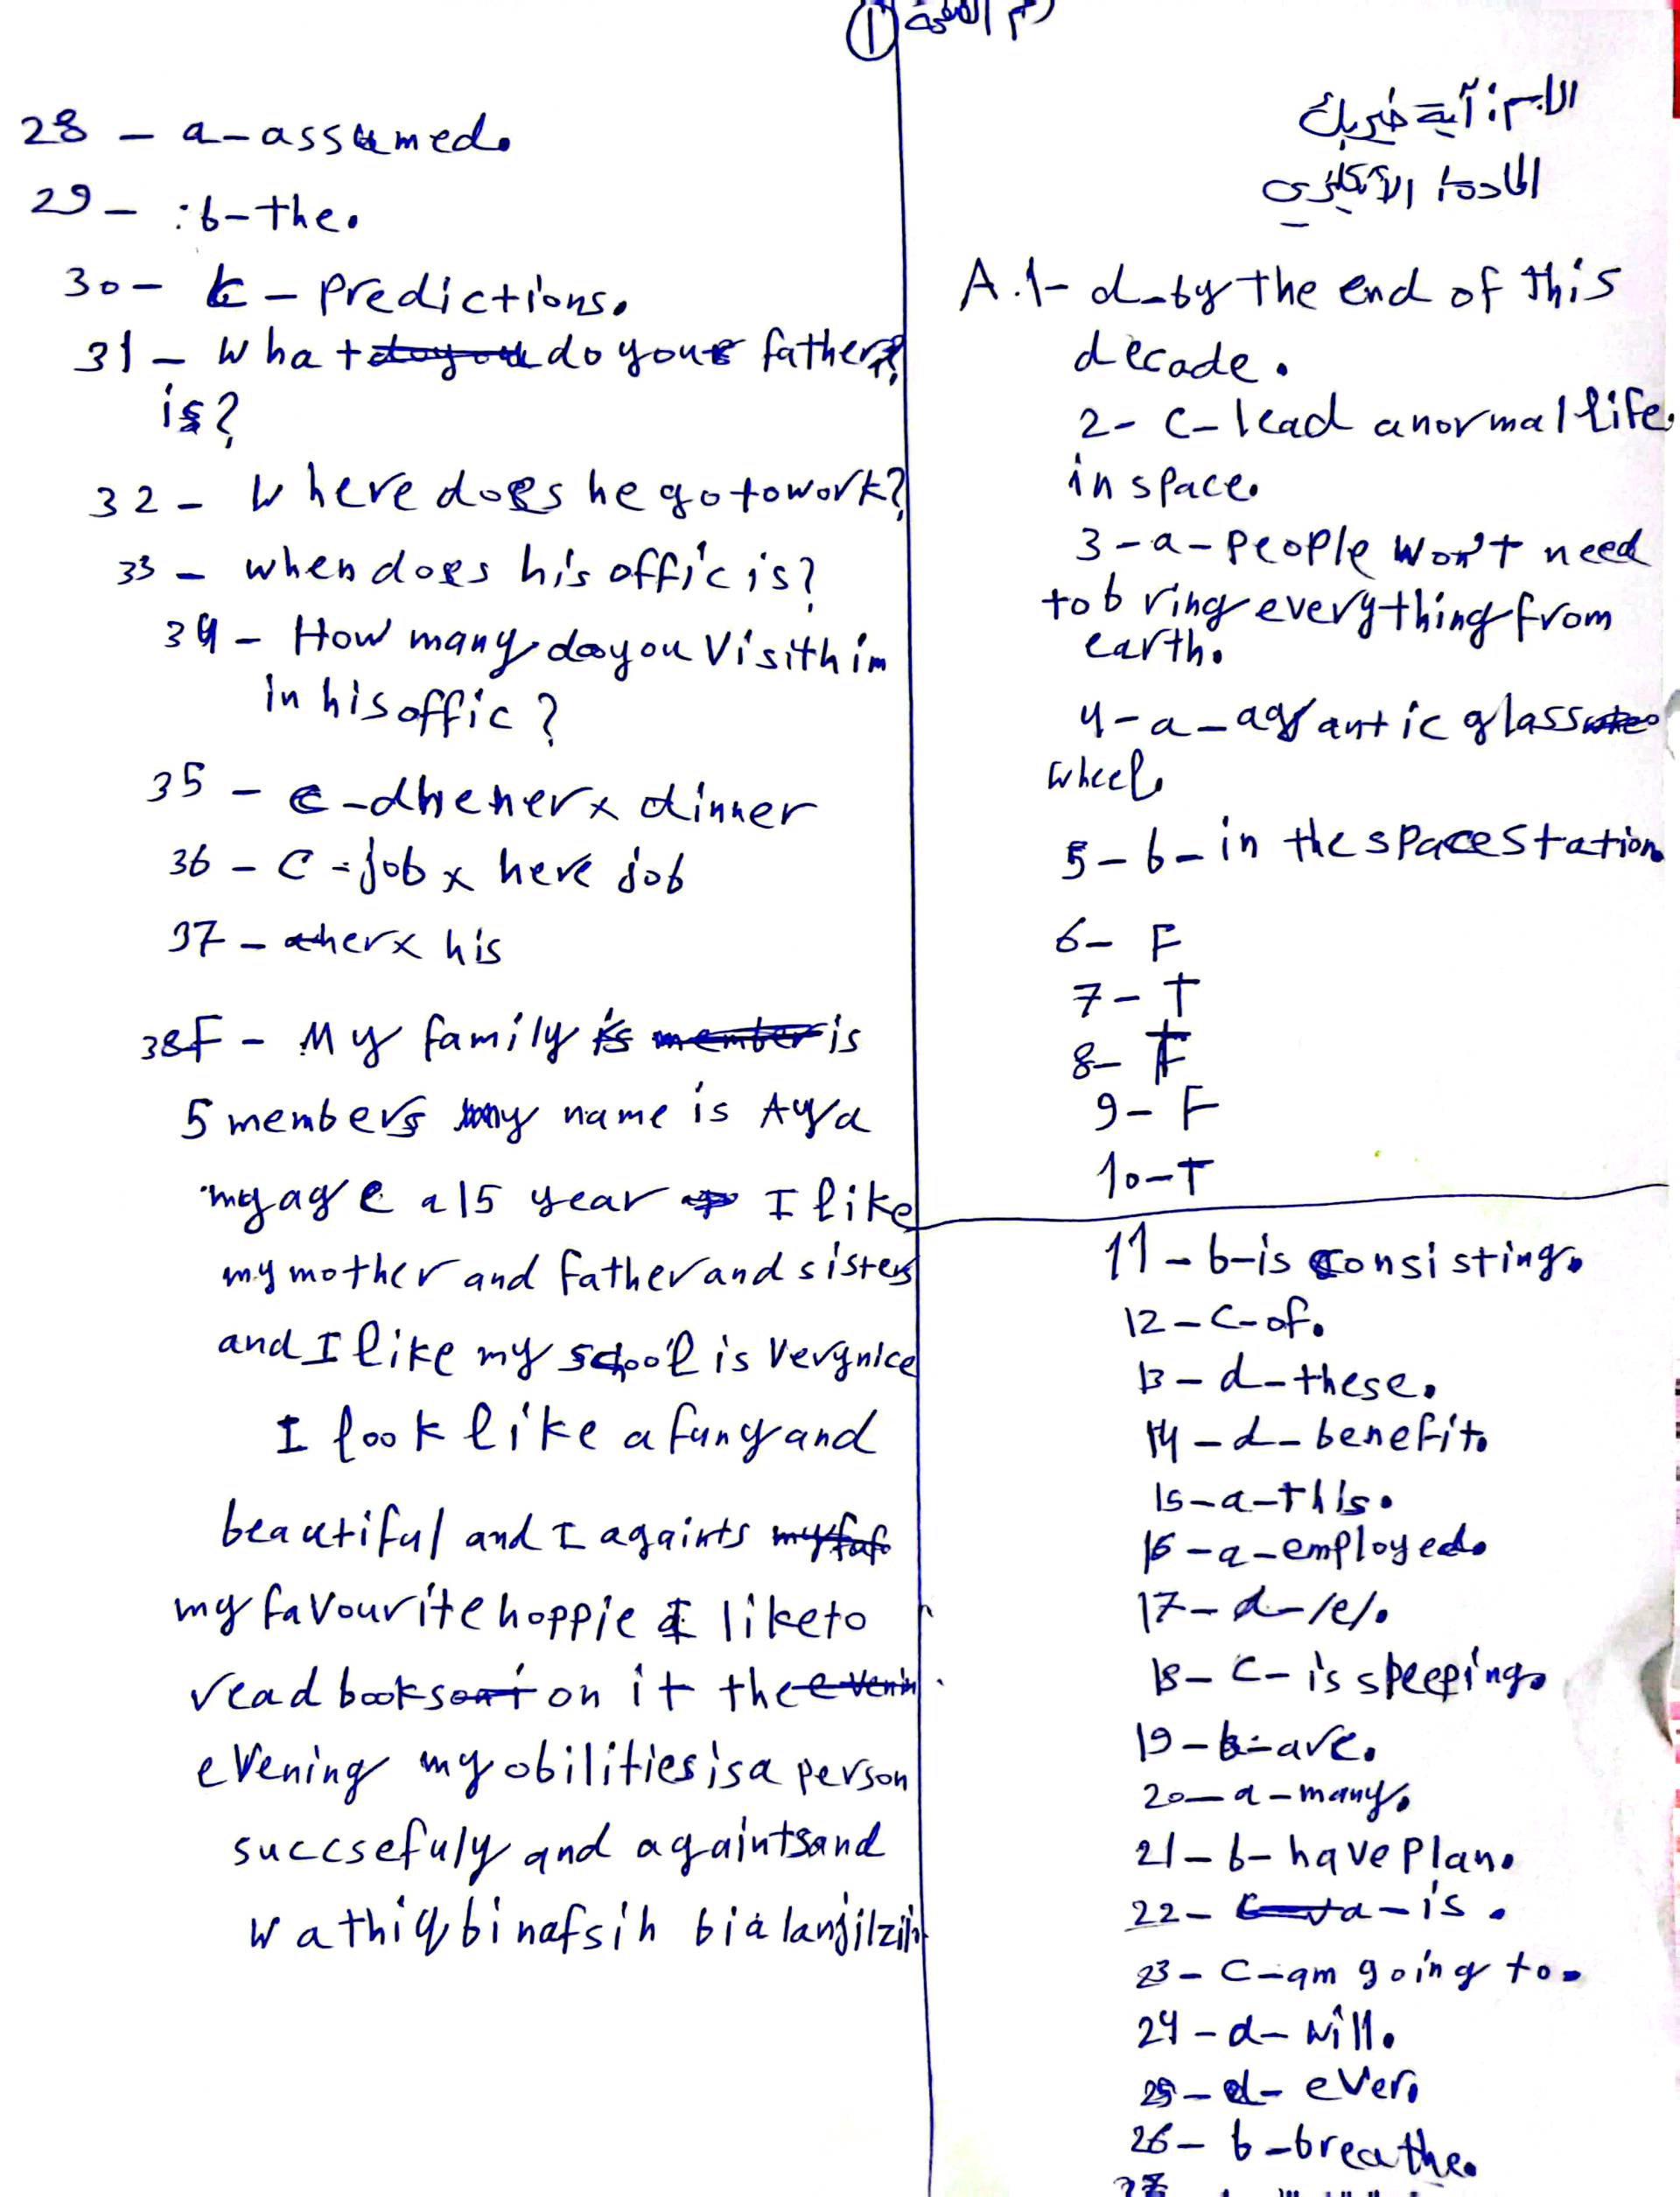 رقم الصفحة ①
الاسم: آية خير بك
المادة: الانكليزي
A.1- d-by the end of this
decade.
2- c-lead a normal life
in space.
3-a-People won't need
to bring everything from
earth.
4-a-a gantic glass
wheel.
5-b-in the space station
6- F
7- T
8-
9- F
10-T
11-b-is consisting.
12-c-of.
13-d-these.
14-d-benefit.
15-a-this.
16-a-employed.
17-d-/e/.
18-c-is speeping.
19-b-are.
20-a-many.
21-b-have plan.
22- a-is.
23-c-am going to.
24-d-will.
25-d-ever.
26-b-breathe.
27
28-a-assumed.
29-:b-the.
30- -predictions.
31-What do your father
is?
32-Where does he go to work?
33-when does his offic is?
34-How many do you Visit him
in his offic?
35-c- x dinner
36-c-job x here job
37- her x his
38F-My family is
5 members my name is Aya
my age a 15 year I like
my mother and father and sisters
and I like my school is Very nice
I look like a funy and
beautiful and I againts
my favourite hoppie I like to
read books on it the
evening my obilities is a person
succsefuly and againts and
wathiq binafsih bialanjilziih